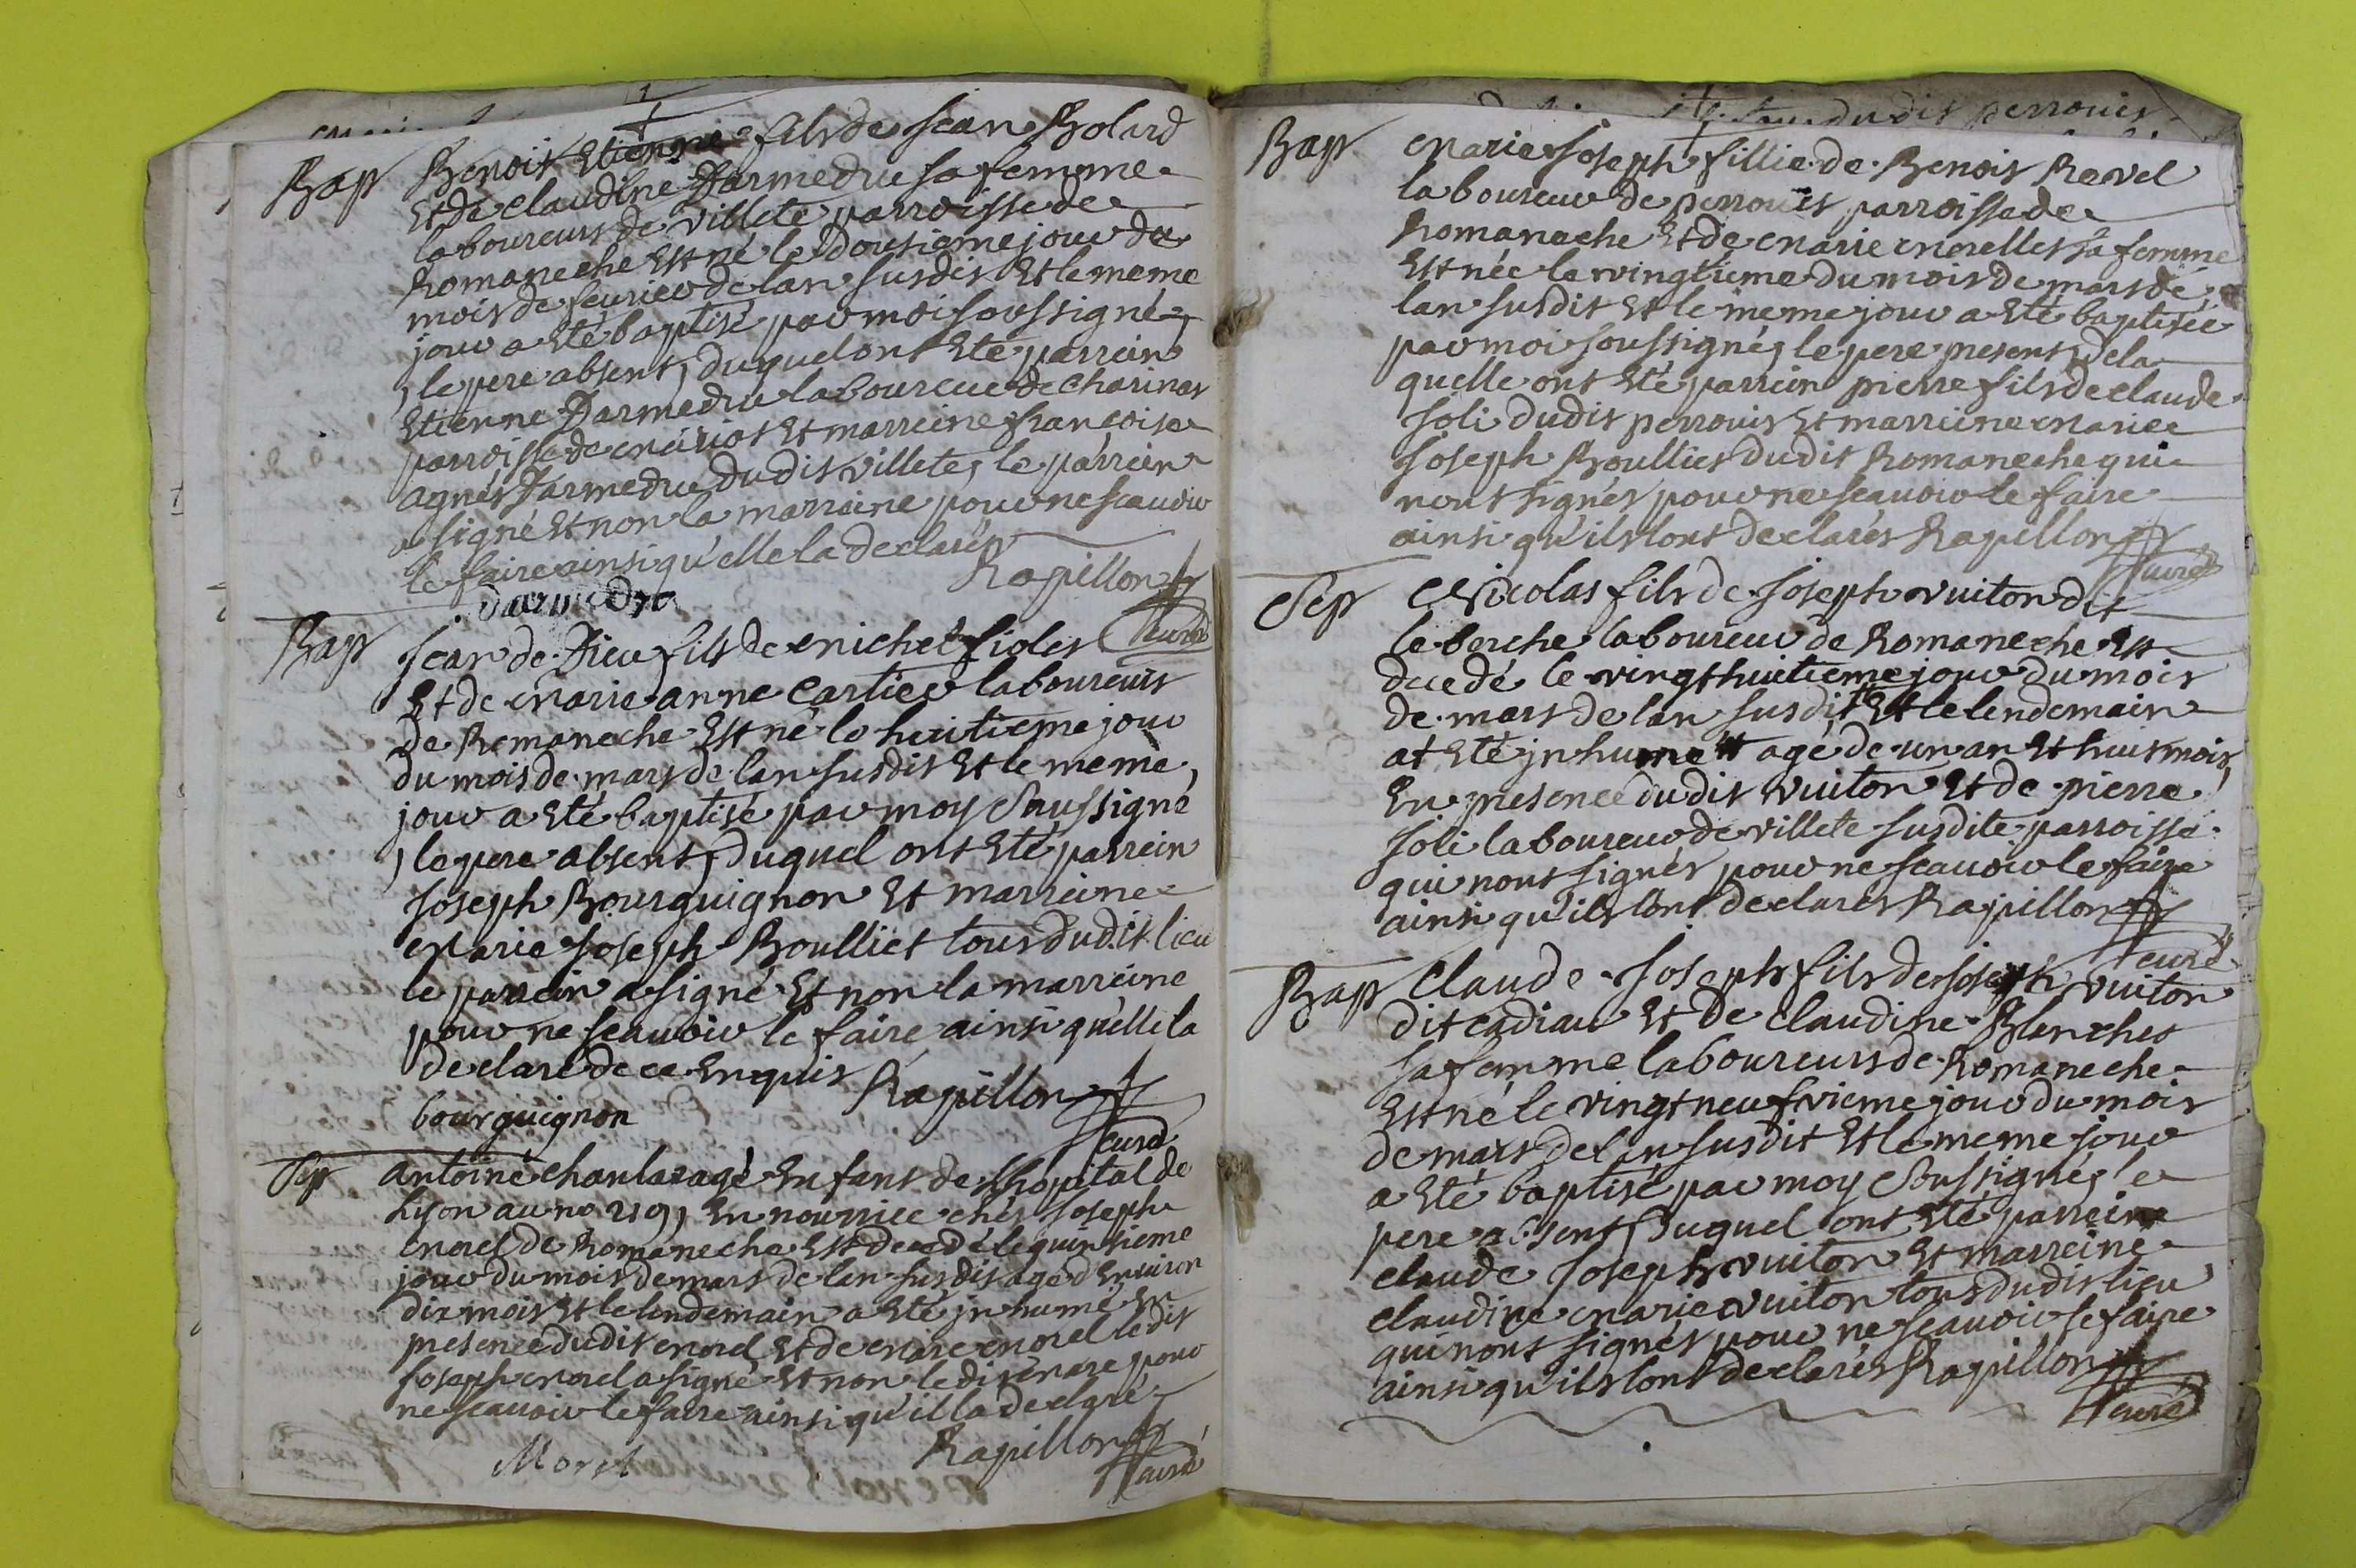 Bap Benoit Etienne fils de jean Bolard
Et de Claudine Darmedru sa femme
laboureurs de villete parroisse de
Romaneche Est né le dousieme jour du
mois de feurier de lan susdit Et le meme
jour a Eté baptisé par moi soussigné,
, le pere absent, duquel ont Eté parrein
Etienne Darmedru laboureur de Charinas
parroisse de Et marreine françoise
agnes Darmedru dudit villete, le parrein
a signé Et non la marreine pour ne scauoir
le faire ainsi qu'elle la declarés
Rapillon
darmedru
curé
Bap jean de Dieu fils de michel fioles
Et de marie anne Cartier laboureurs
de Romaneche Est né le huitieme jour
du mois de mars de lan susdit Et le meme,
jour a Eté baptisé par moy Soussigné
, le pere absent, duquel ont Eté parrein
joseph Bourguignon Et marreine
marie joseph Boullier tous dudit lieu
le parrein a signé Et non la marreine
pour ne scauoir le faire ainsi qu'elle la
declaré de ce Enquis Rapillon
bourguignon
curé
Sep antoine Enfant de Lhopital de
Lyon au no En nourrice chés joseph
morel de Romaneche Est decedé le quinsieme
jour du mois de mars de lan susdit agé d'Enuiron
dix mois Et le lendemain a Eté jnhumé En
presence dudit morel Et de marc morel ledit
joseph morel a signé Et non ledit marc pour
ne scauoir le faire ainsi qu'il la declaré
Rapillon
Morel
curé
dudit perrouis
Bap marie joseph fillie de Benoit Revel
laboureur de perrouis parroisse de
Romaneche Et de marie morelles sa femme
Est née le vingtieme du mois de mars de
lan susdit Et le meme jour a Eté baptisée
par moi soussigné, le pere present, de la
quelle ont Eté parrein pierre fils de claude
joli dudit perrouis Et marreine marie
joseph Boullier dudit Romaneche qui
nont signés pour ne scauoir le faire
ainsi qu'ils lont declarés Rapillon
curé
Sep Nicolas fils de joseph vuiton dit
le berche laboureur de Romaneche Est
decedé le vingt huitieme jour du mois
de mars de lan susdit Et le lendemain
at Eté jnhumé agé de un an Et huit mois
En presence dudit vuiton Et de pierre
joli laboureur de villete susdite parroisse
qui nont signés pour ne scauoir le faire
ainsi qu'ils lont declarés Rapillon
curé
Bap Claude joseph fils de joseph vuiton
dit cadiau Et de claudine Blanches
sa femme laboureurs de Romaneche
Est né le vingt neufvieme jour du mois
de mars de lan susdit Et le meme jour
a Eté baptisé par moy Soussigné, le
pere absent, duquel ont Eté parrein
claude joseph vuiton Et marreine
claudine marie vuiton tous dudit lieu
qui nont signés pour ne scauoir le faire
ainsi qu'ils lont declarés Rapillon
curé